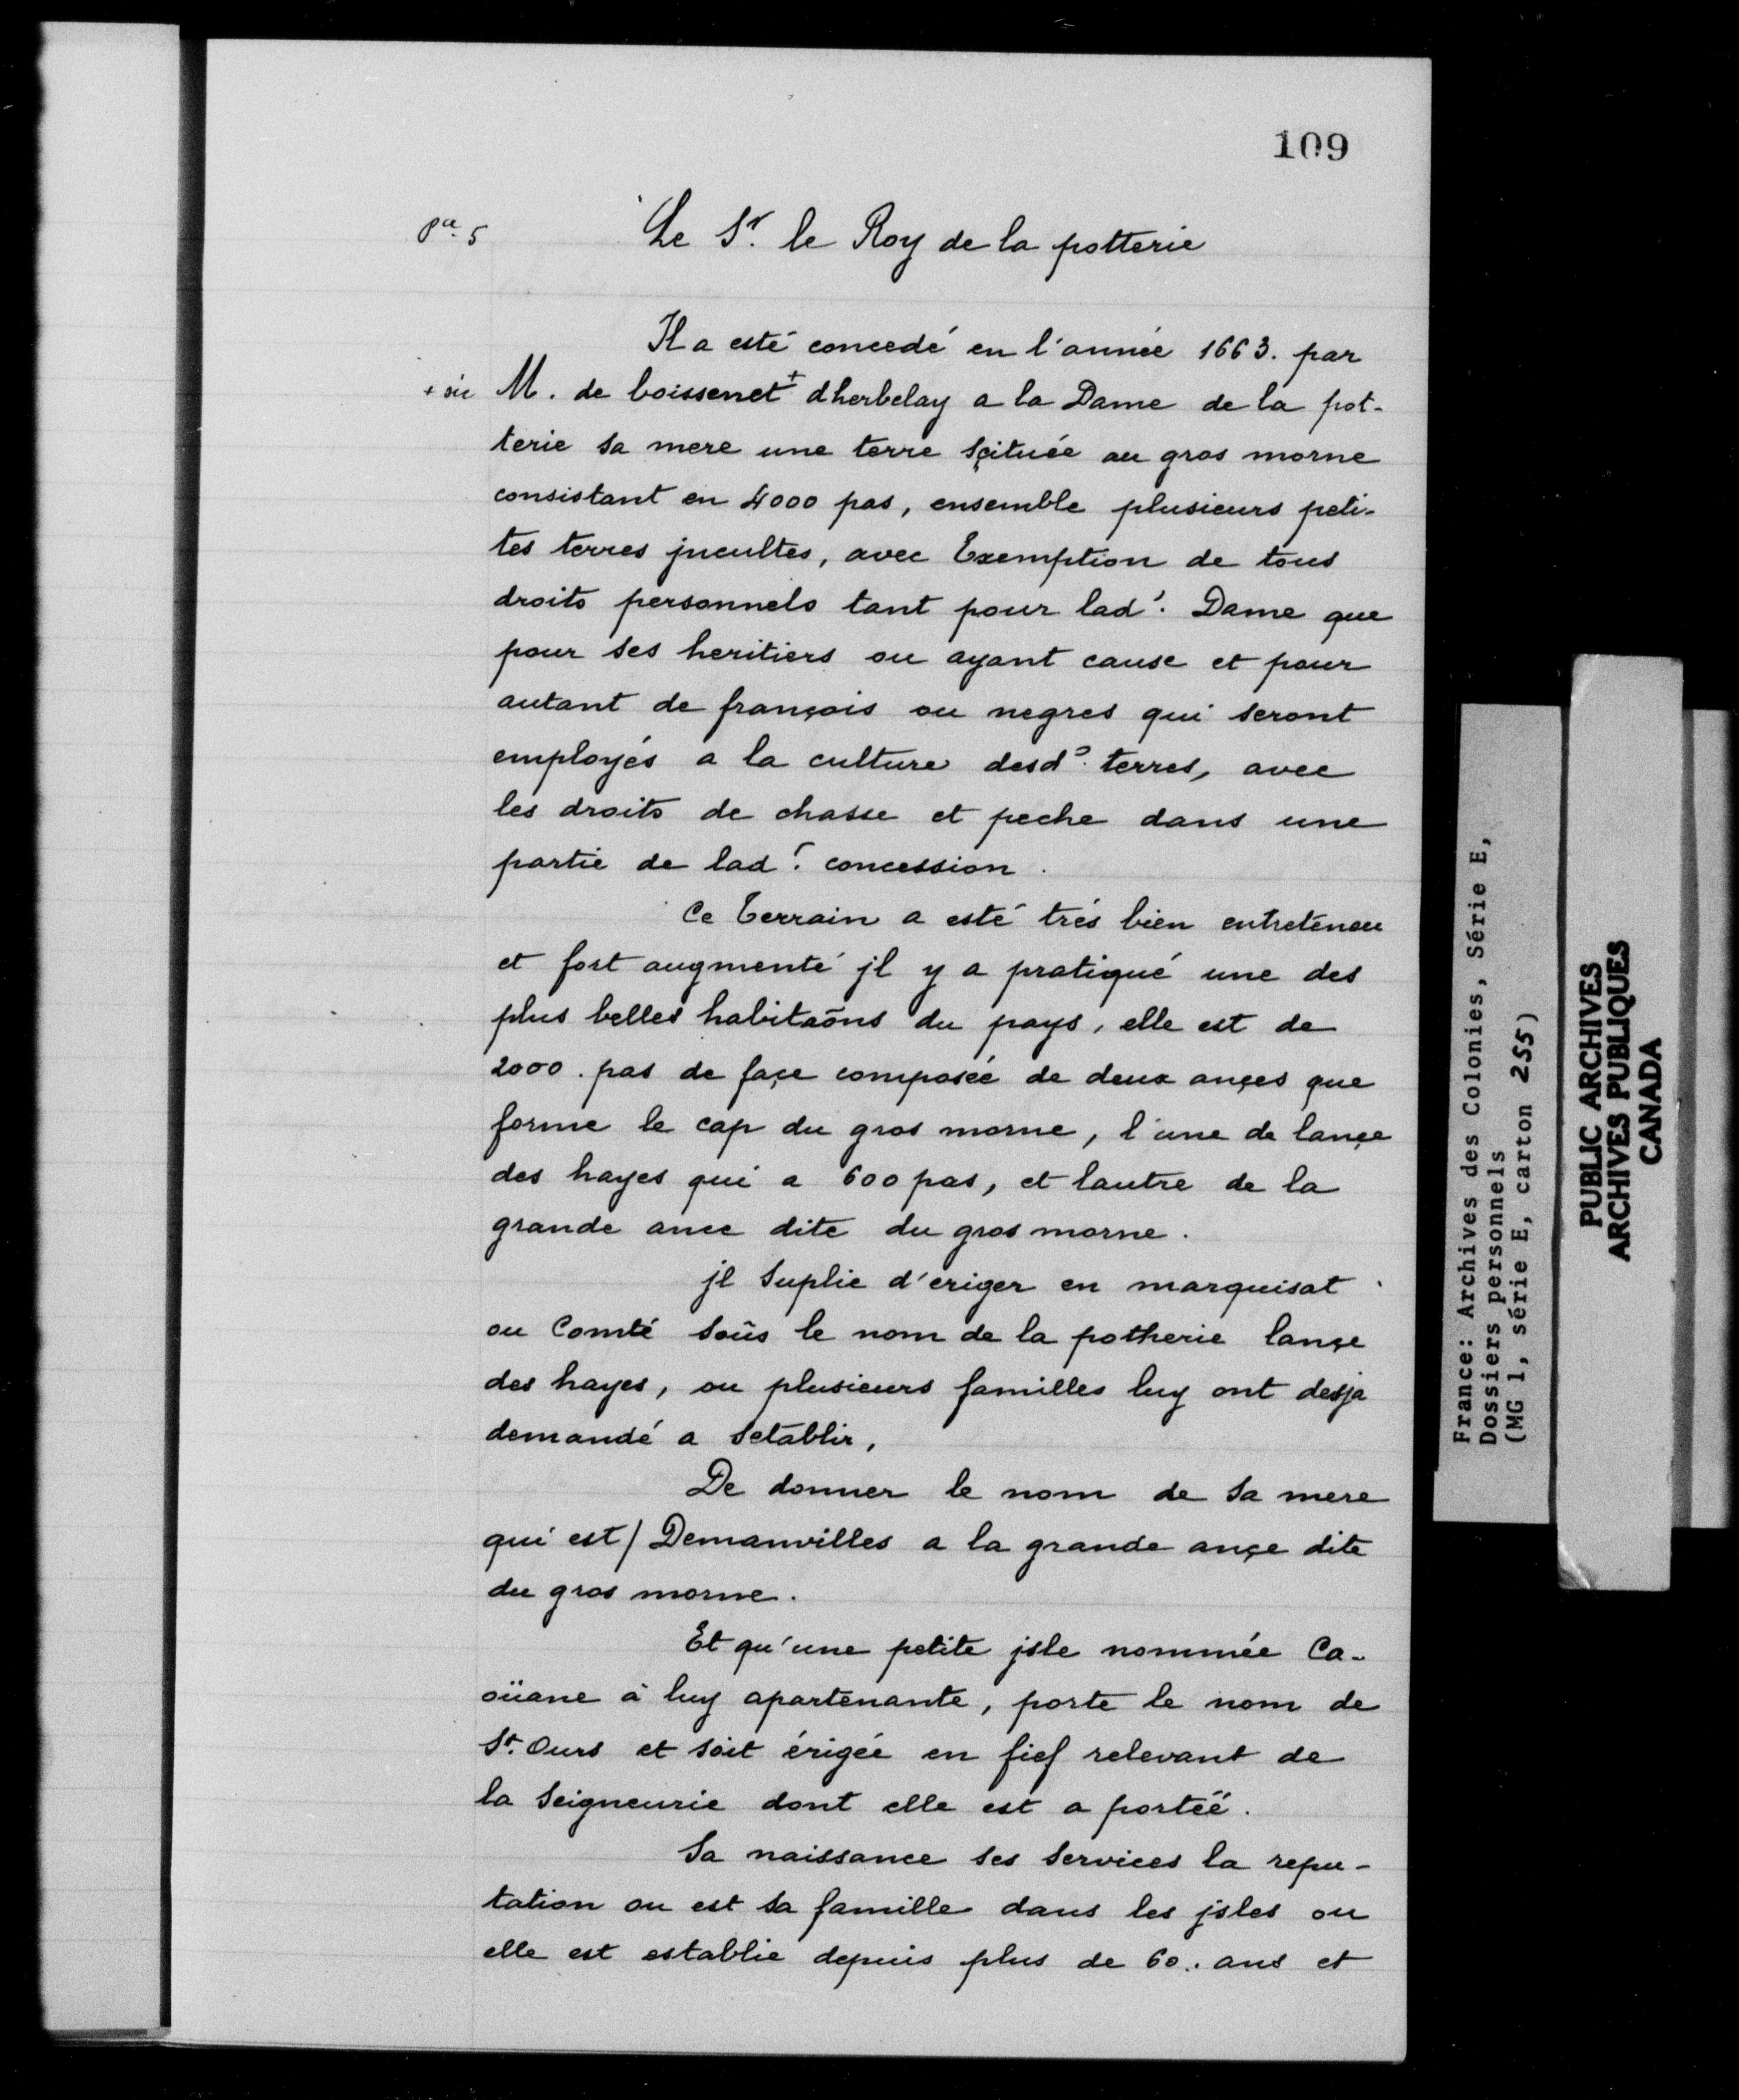 109
Pce. 5
Le Sr. le Roy de la potterie
Il a esté concedé en l'année 1663. par
+ sic M. de boissenet + dherbelay a la Dame de la pot-
terie sa mere une terre sçituée au gros morne
consistant en 4000 pas, ensemble plusieurs peti-
tes terres jncultes, avec Exemption de tous
droits personnels tant pour lad. Dame que
pour ses heritiers ou ayant cause et pour
autant de françois ou negres qui seront
employés a la culture desd. terres, avec
les droits de chasse et peche dans une
partie de lad. concession.
Ce terrain a esté trés bien entretenou
et fort augmenté jl y a pratiqué une des
plus belles habitaõns du pays, elle est de
2000. pas de façe composée de deux ançes que
forme le cap du gros morne, l'une de lançe
des hayes qui a 600 pas, et lautre de la
grande ance dite du gros morne.
jl suplie d'eriger en marquisat
ou Comté soûs le nom de la potherie lançe
des hayes, ou plusieurs familles luy ont desja
demandé a setablir,
De donner le nom de sa mere
qui est / Demanvilles a la grande ançe dite
du gros morne.
Et qu'une petite jsle nommée Ca-
oüane à luy apartenante, porte le nom de
St. Ours et soit érigée en fief relevant de
la Seigneurie dont elle est a portée.
Sa naissance ses services la repu-
tation ou est sa famille dans les jsles ou
elle est establie depuis plus de 60. ans et
France: Archives des Colonies, Série E,
Dossiers personnels
(MG 1, série E, carton 255)
PUBLIC ARCHIVES
ARCHIVES PUBLIQUES
CANADA